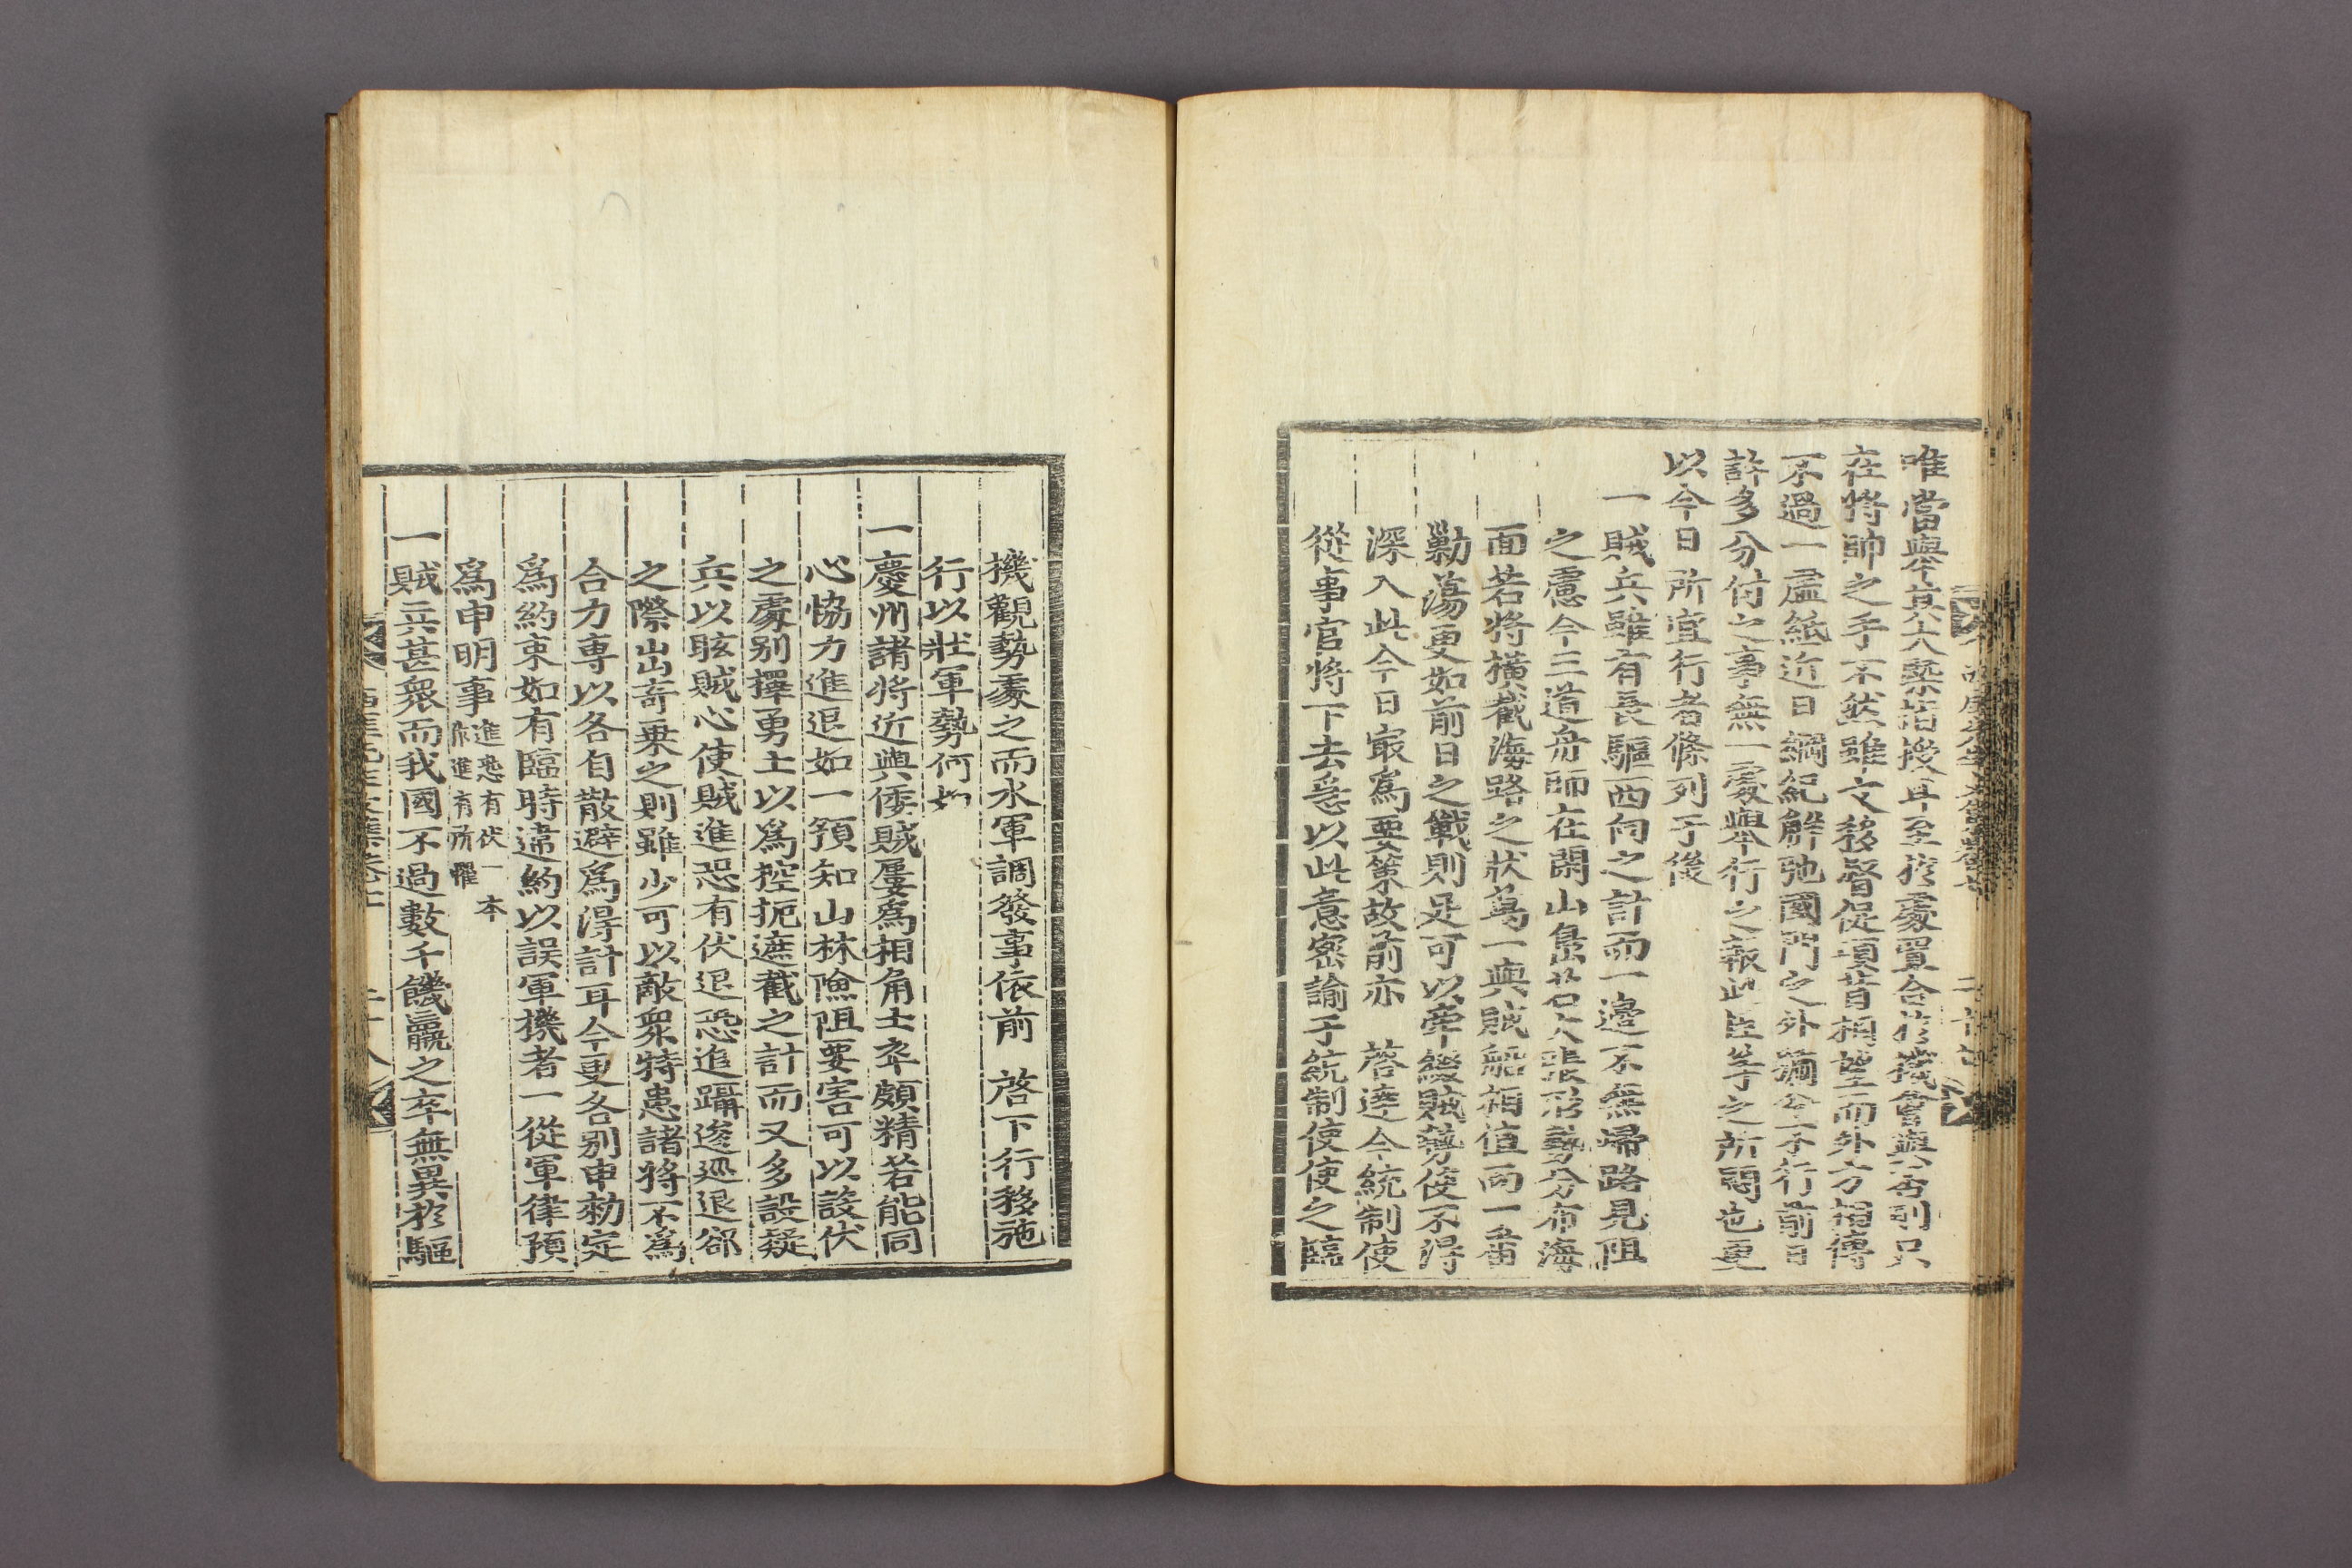 唯當擧其大槩指授耳至於處置合於機會與否則只
在將帥之手不然雖文移督促項背相望而外方相傳
不過一虛紙近日綱紀解弛國門之外號令不行前日
許多分付之事無一處擧行之報此臣等之所悶也更
以今日所宜行者條列于後
一賊兵雖有長驅西向之計而一邊不無歸路見阻
之慮今三道舟師在閑山島若大張形勢分布海
面若將橫截海路之狀萬一與賊船相值而一番
勦蕩更如前日之戰則足可以牽綴賊勢使不得
深入此今日㝡爲要策故前亦 啓達今統制使
從事官將下去急以此意密諭于統制使使之臨
機觀勢處之而水軍調發事依前 啓下行移施
行以壯軍勢何如
一慶州諸將近與倭賊屢爲相角士卒頗精若能同
心恊力進退如一預知山林險阻要害可以設伏
之處別擇勇士以爲控扼遮截之計而又多設疑
兵以眩賊心使賊進恐有伏退恐追躡逡廵退却
之際出奇乗之則雖少可以敵衆特患諸將不爲
合力専以各自散避爲得計耳今更各別申勑定
爲約束如有臨時違約以誤軍機者一從軍律預
爲申明事進恐有伏一本
作進有所懼
一賊兵甚衆而我國不過數千饑羸之卒無異於驅